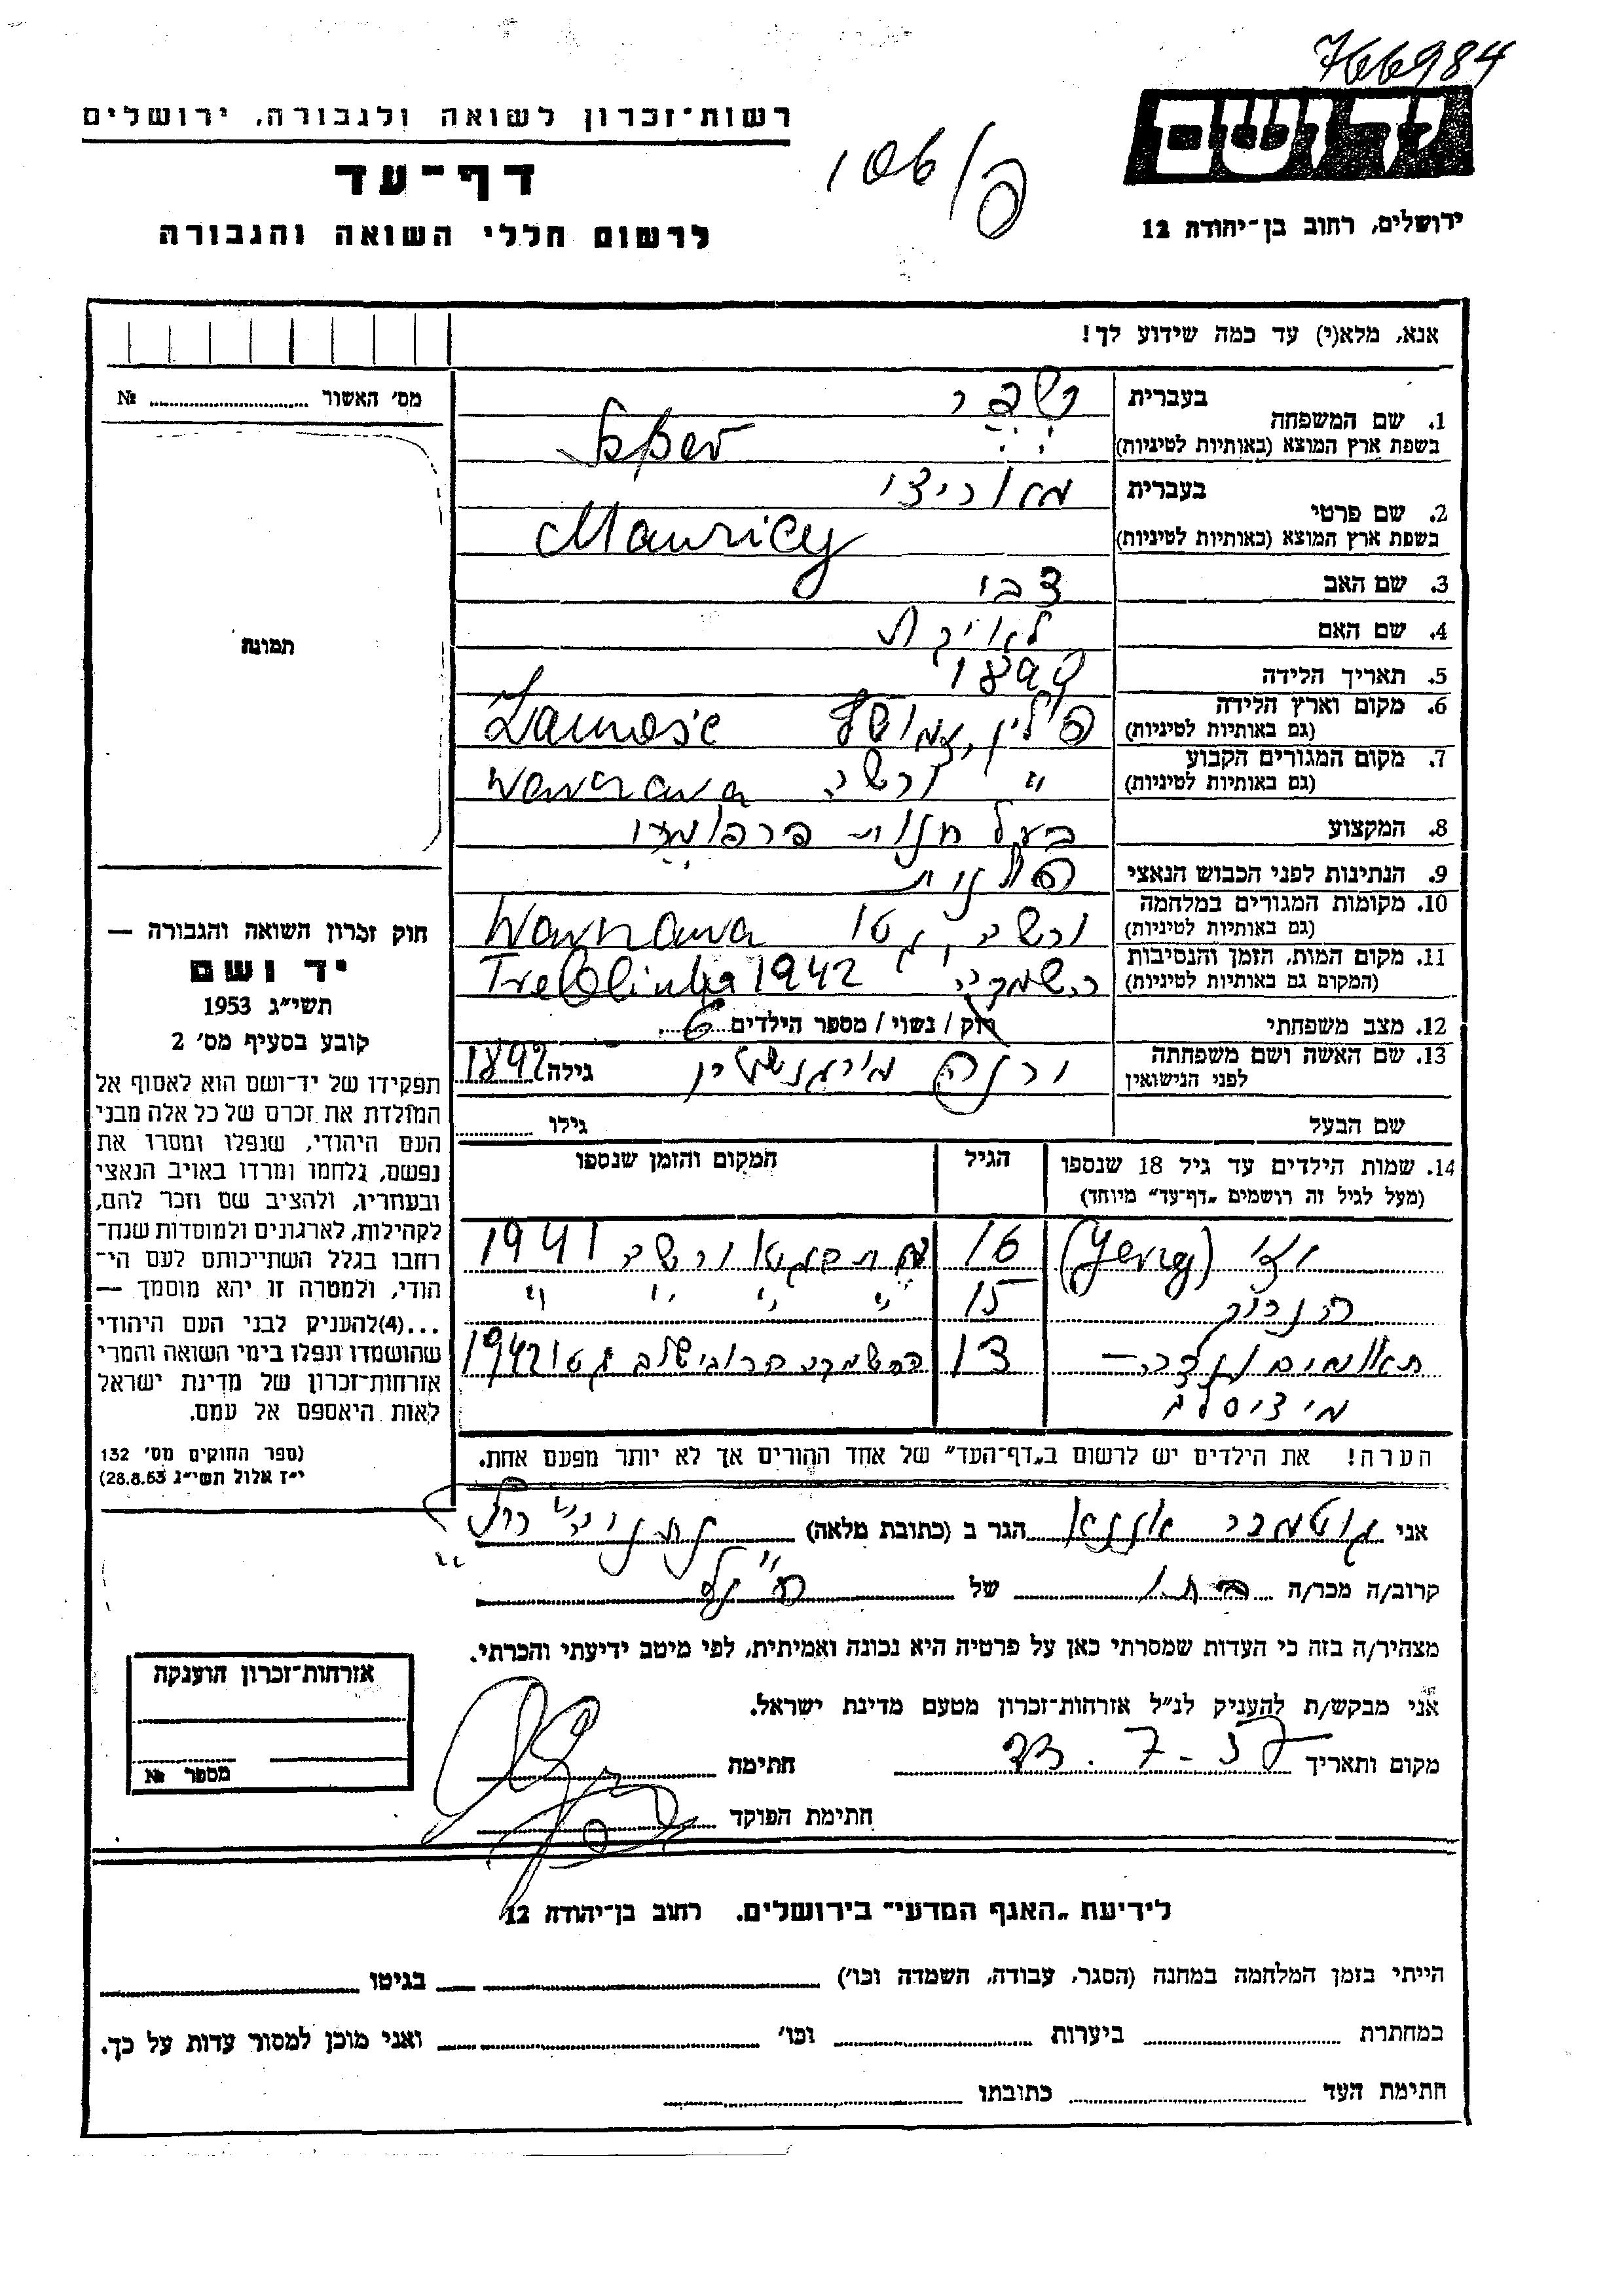 766984
ידושם
ירושלים, רחוב בן־יהודה 12
106/פ
רשות־זכרון לשואה ולגבורה, ירושלים
דף־עד
לרשום חללי השואה והגבורה
אנא, מלא(י) עד כמה שידוע לך!
מס׳ האשור № 
תמונה
1. שם המשפחה
בעברית
בשפת ארץ המוצא (באותיות לטיניות)
2. שם פרטי
בעברית מוריצי
בשפת ארץ המוצא (באותיות לטיניות) Mauricy
3. שם האב צבי
4. שם האם
5. תאריך הלידה
6. מקום וארץ הלידה פולין, Zamość
(גם באותיות לטיניות)
7. מקום המגורים הקבוע " ורשה Warszawa
(גם באותיות לטיניות)
8. המקצוע בעל חנות
9. הנתינות לפני הכבוש הנאצי פולנית
10. מקומות המגורים במלחמה ורשה, גטו Warszawa
(גם באותיות לטיניות)
11. מקום המות, הזמן והנסיבות Treblinka 1942
(המקום גם באותיות לטיניות)
12. מצב משפחתי רוק / נשוי / מספר הילדים 6
13. שם האשה ושם משפחתה גילה 1892
לפני הנישואין
שם הבעל גילו
14. שמות הילדים עד גיל 18 שנספו הגיל המקום והזמן שנספו
(מעל לגיל זה רושמים „דף־עד" מיוחד)
(Jerzy) 16 ורשה 1941
הנריק 15 " " " " "
תאומים 13 גטו 1942
הערה! את הילדים יש לרשום ב„דף־העד" של אחד ההורים אך לא יותר מפעם אחת.
חוק זכרון השואה והגבורה —
יד ושם
תשי״ג 1953
קובע בסעיף מס׳ 2
תפקידו של יד־ושם הוא לאסוף אל
המולדת את זכרם של כל אלה מבני
העם היהודי, שנפלו ומסרו את
נפשם, נלחמו ומרדו באויב הנאצי
ובעוזריו, ולהציב שם וזכר להם,
לקהילות, לארגונים ולמוסדות שנח־
רחבו בגלל השתייכותם לעם הי־
הודי, ולמטרה זו יהא מוסמך —
...(4)להעניק לבני העם היהודי
שהושמדו ונפלו בימי השואה והמרי
אזרחות־זכרון של מדינת ישראל
לאות היאספם אל עמם.
(ספר החוקים מס׳ 132
י״ז אלול תשי״ג 28.8.53)
אני הגר ב (כתובת מלאה)
קרוב/ה מכר/ה של
מצהיר/ה בזה כי העדות שמסרתי כאן על פרטיה היא נכונה ואמיתית, לפי מיטב ידיעתי והכרתי.
אני מבקש/ת להעניק לנ״ל אזרחות־זכרון מטעם מדינת ישראל.
מקום ותאריך חתימה
חתימת הפוקד
אזרחות־זכרון הוענקה
מספר №
לידיעת „האגף המדעי" בירושלים. רחוב בן־יהודה 12
הייתי בזמן המלחמה במחנה (הסגר, עבודה, השמדה וכו׳) בגיטו
במחתרת ביערות וכו׳ ואני מוכן למסור עדות על כך.
חתימת העד כתובתו